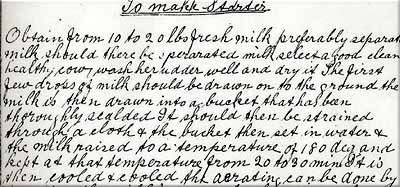 To make Starter
Obtain from 10 to 20 lbs fresh milk preferably separat
milk should there be seperated milk select a good clean
healthy cow, wash her udder well and dry it The first
few drops of milk should be drawn on to the ground the
milk is then drawn into a bucket that has been
thoroughly scalded It should then be strained
through a cloth & the bucket then set in water &
the milk raised to a temperature of 180 deg and
kept at that temperature from 20 to 30 min It is
then cooled & cooled the aerating can be done by